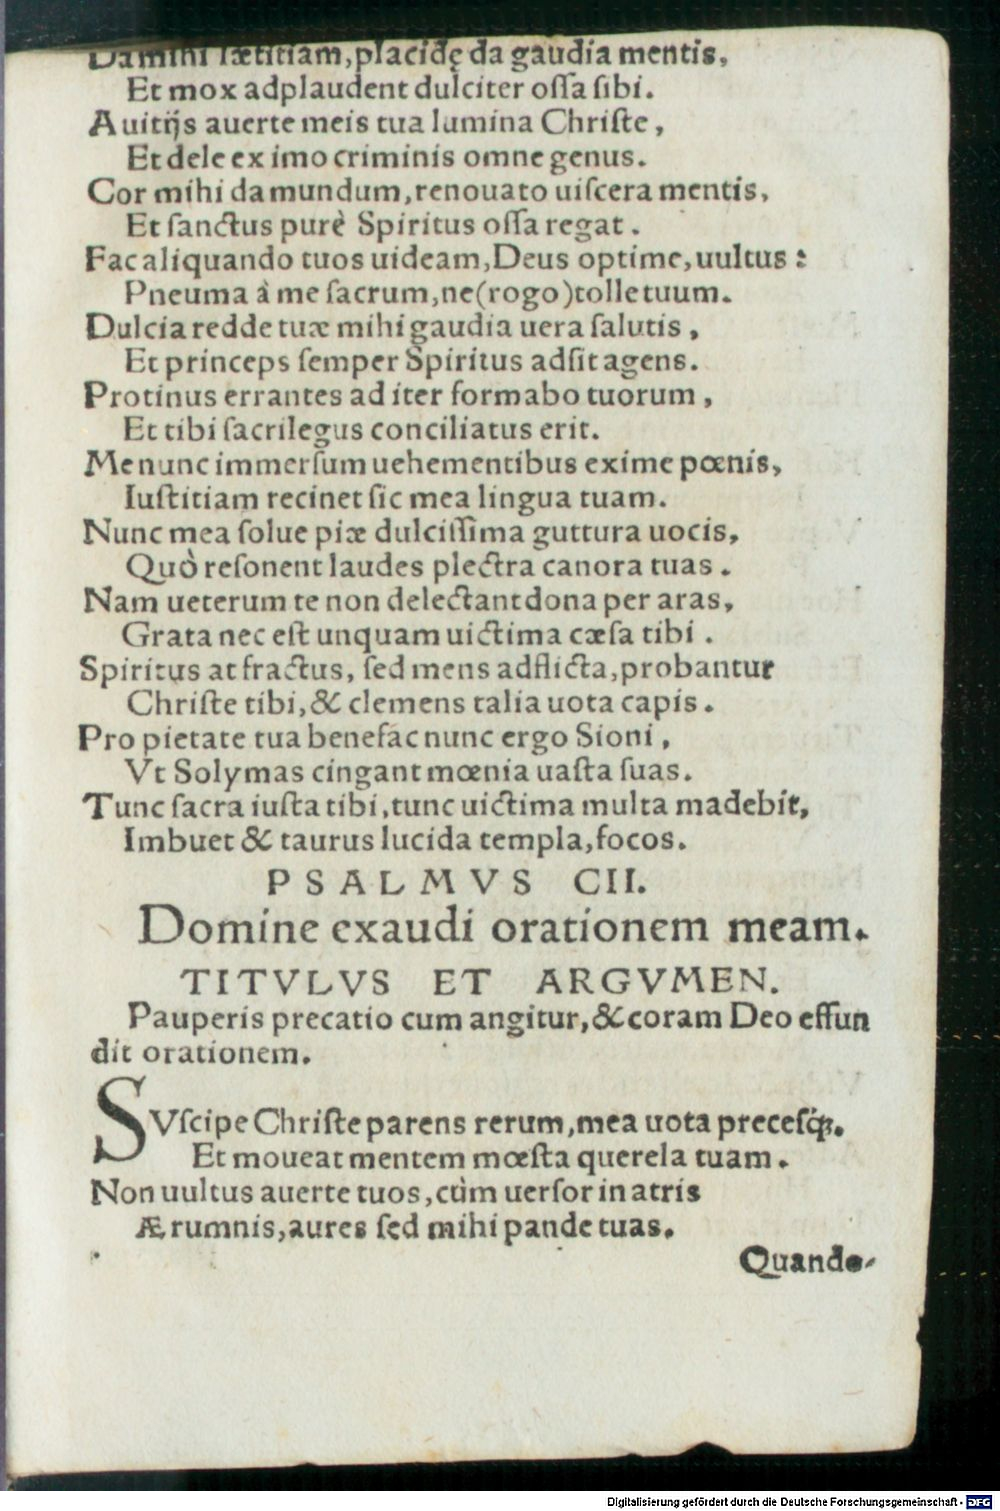 Da mihi lætitiam, placidę da gaudia mentis,
Et mox adplaudent dulciter oſſa ſibi.
A uitijs auerte meis tua lumina Chriſte,
Et dele ex imo criminis omne genus.
Cor mihi da mundum, renouato uiſcera mentis,
Et ſanctus purè Spiritus oſſa regat.
Fac aliquando tuos uideam, Deus optime, uultus:
Pneuma à me ſacrum, ne (rogo) tolle tuum.
Dulcia redde tuæ mihi gaudia uera ſalutis,
Et princeps ſemper Spiritus adſit agens.
Protinus errantes ad iter formabo tuorum,
Et tibi ſacrilegus conciliatus erit.
Me nunc immerſum uehementibus exime pœnis,
Iuſtitiam recinet ſic mea lingua tuam.
Nunc mea ſolue piæ dulciſſima guttura uocis,
Quò reſonent laudes plectra canora tuas.
Nam ueterum te non delectant dona per aras,
Grata nec eſt unquam uictima cæſa tibi.
Spiritus at fractus, ſed mens adflicta, probantur
Chriſte tibi, & clemens talia uota capis.
Pro pietate tua benefac nunc ergo Sioni,
Vt Solymas cingant mœnia uaſta ſuas.
Tunc ſacra iuſta tibi, tunc uictima multa madebit,
Imbuet & taurus lucida templa, focos.
PSALMVS CII.
Domine exaudi orationem meam.
TITVLVS ET ARGVMEN.
Pauperis precatio cum angitur, & coram Deo effun
dit orationem.
SVſcipe Chriſte parens rerum, mea uota preceſq́;.
Et moueat mentem mœſta querela tuam.
Non uultus auerte tuos, cùm uerſor in atris
Ærumnis, aures ſed mihi pande tuas.
Quando-
Digitalisierung gefördert durch die Deutsche Forschungsgemeinschaft - DFG